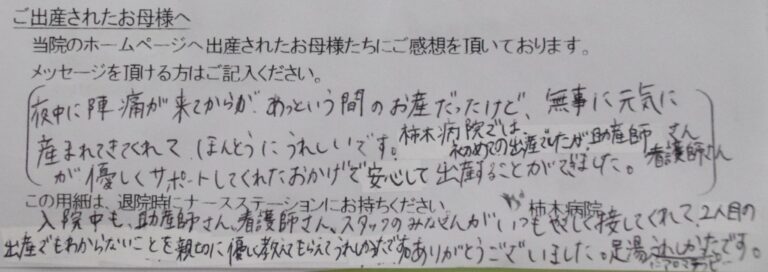 ご出産されたお母様へ
当院のホームページへ出産されたお母様たちにご感想を頂いております。
メッセージを頂ける方はご記入ください。
夜中に陣痛が来てからが、あっという間のお産だったけど、無事に元気に
産まれてきてくれて、ほんとうにうれしいです。柿木病院では
初めての出産でしたが助産師さん
看護師さん
が優しくサポートしてくれたおかげで安心して出産することができました。
この用紙は、退院時にナースステーションにお持ちください。 柿木病院
入院中も、助産師さん、看護師さん、スタッフのみなさんがいつもやさしく接してくれて、2人目の
出産でもわからないことを親切に優しく教えてもらえてうれしかったです。ありがとうございました。足湯うれしかったです。